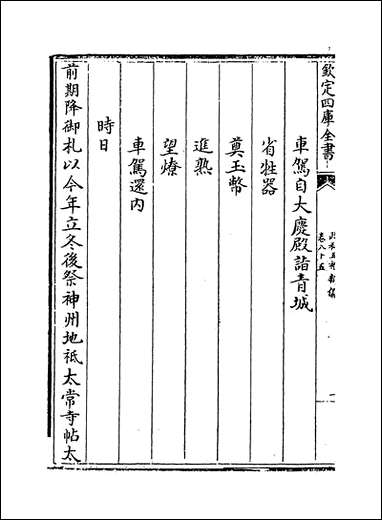 欽定四庫全書
卷八十五
車駕自大慶殿詣青城
省牲器
奠玉幣
進熟
望燎
車駕還内
時日
前期降御札以今年立冬後祭神州地祗太常寺帖太